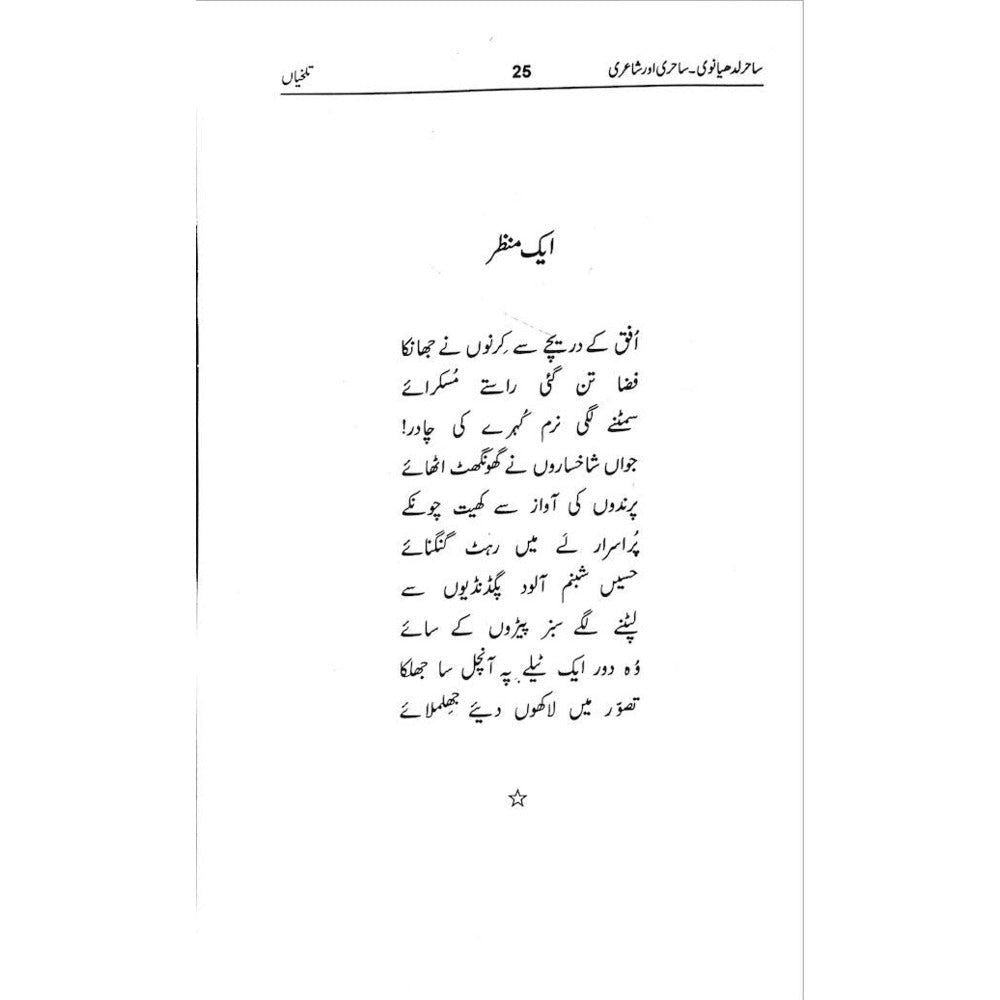 ساحر لدھیانوی۔ساحری اور شاعری 25 تلخیاں
ایک منظر
اُفق کے دریچے سے کِرنوں نے جھانکا
فضا تن گئی راستے مُسکرائے
سمٹنے لگی نرم کُہرے کی چادر!
جواں شاخساروں نے گھونگھٹ اٹھائے
پرندوں کی آواز سے کھیت چونکے
پُراسرار لَے میں رہٹ گنگنائے
حسیں شبنم آلود پگڈنڈیوں سے
لپٹنے لگے سبز پیڑوں کے سائے
وُہ دور ایک ٹیلے پہ آنچل سا جھلکا
تصوّر میں لاکھوں دیئے جھِلملائے
☆